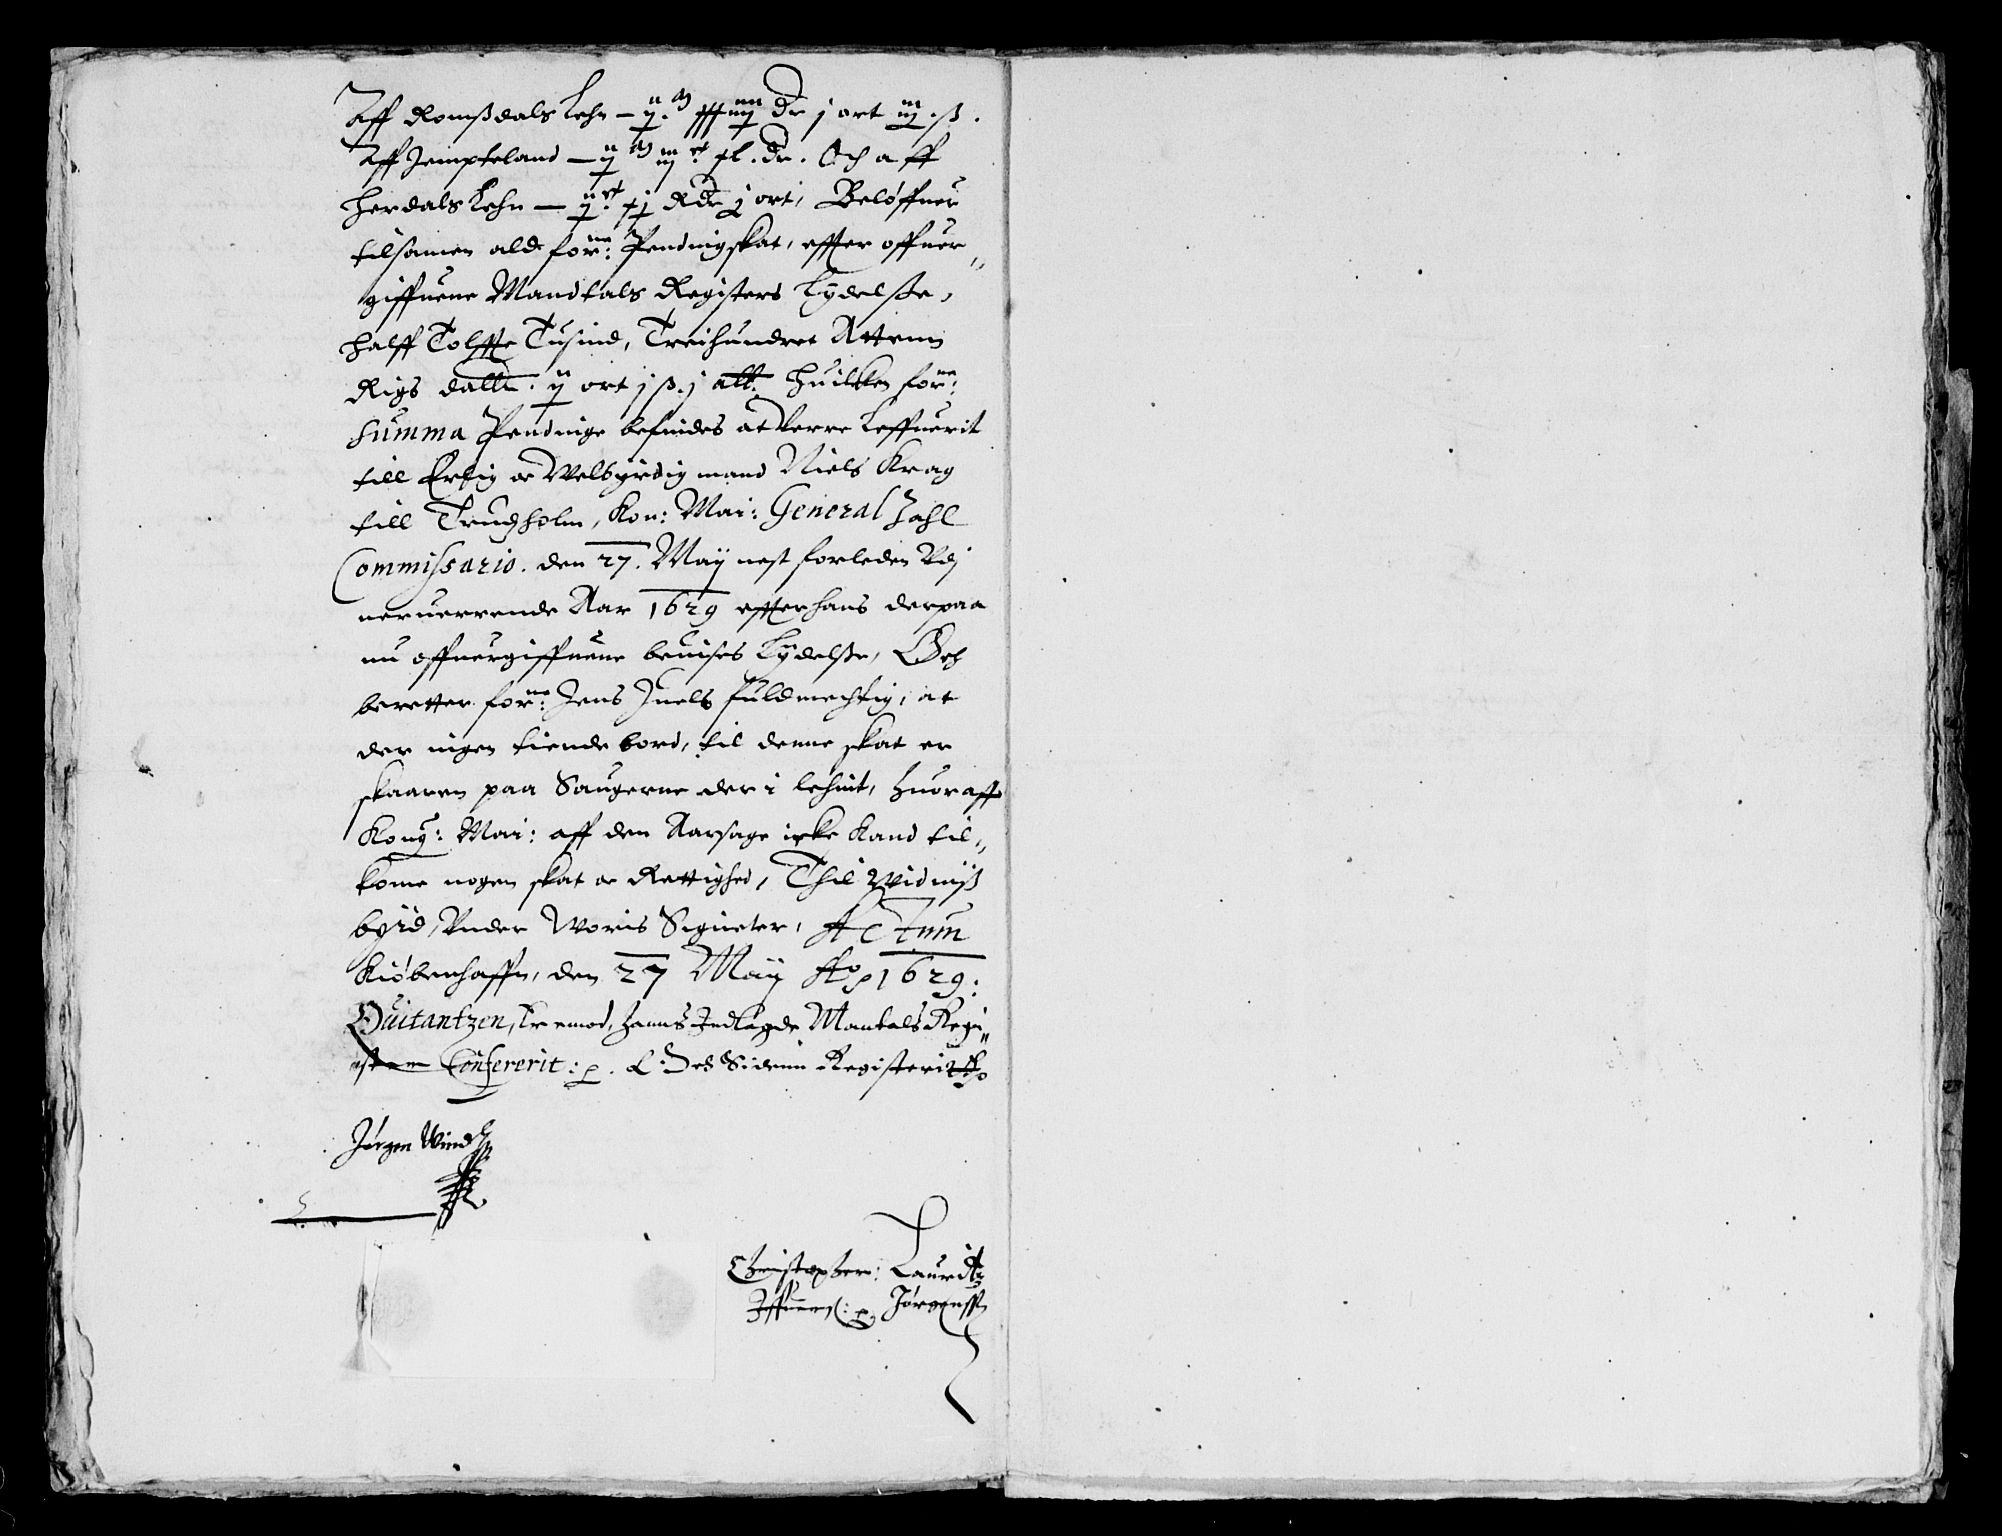 Aff Romßdals Lehn – ij M xxxiiij dr j ort iij ß.
Aff Jempteland – ij M iij c xl. dr. Och aff
Herdals Lehn – ij c xj Rdr j ort, Beløffuer
tilsamen ald forne: Pendingskat, effter offuer„
giffuene Mandtals Registers Lydelße,
halff Tolffte Tusind, Treihundret Attenn
Rigs dallr. ij ort j ß. j alb. huilken forne:
summa Pendinge befindes at verre Leffuerit
till Erlig oc Welbyrdig mand Niels Krag
till Trudzholm, Kon: Mai: General Zahl
Commissario. den 27. Maij nest forleden Vdj
neruerrende Aar 1629 effter hans derpaa
nu offuergiffuene beuises Lydelße, Och
beretter forne: Jens Juels fuldmechtig, at
der ingen tiende bord, til denne skat er
skaaren paa Saugerne der i lehnit, huoraff
Kong: Mai: aff den Aarsage icke kand til„
kome nogen skat oc Rettighed, Thil Widniß
byrd, Vnder Woris Signeter, Actum
Kiøbenhaffn, den 27 Maij Ao 1629:
Quitantzen, er emod, hanns Indlagde Mantals Regi„
stere Confererit:
Jørgen Wind
Christopher: Lauritz
Iffuers: Jørgensenn